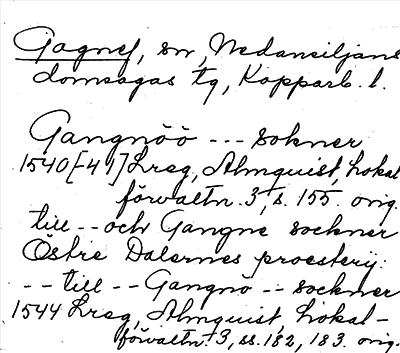 Gagnef, sn, Nedansiljans
domsagas tg, Kopparb. l.
Gangnöö --- sokner
1540[-41] Lreg, Almquist, Lokal
förvaltn. 3, s. 155. orig.
till -- och Gangne sockner
Östre Dalernes prosterij:
-- till -- Gangnö -- sockner
1544 Lreg, Almquist, Lokal-
förvaltn. 3, ss. 182, 183. orig.